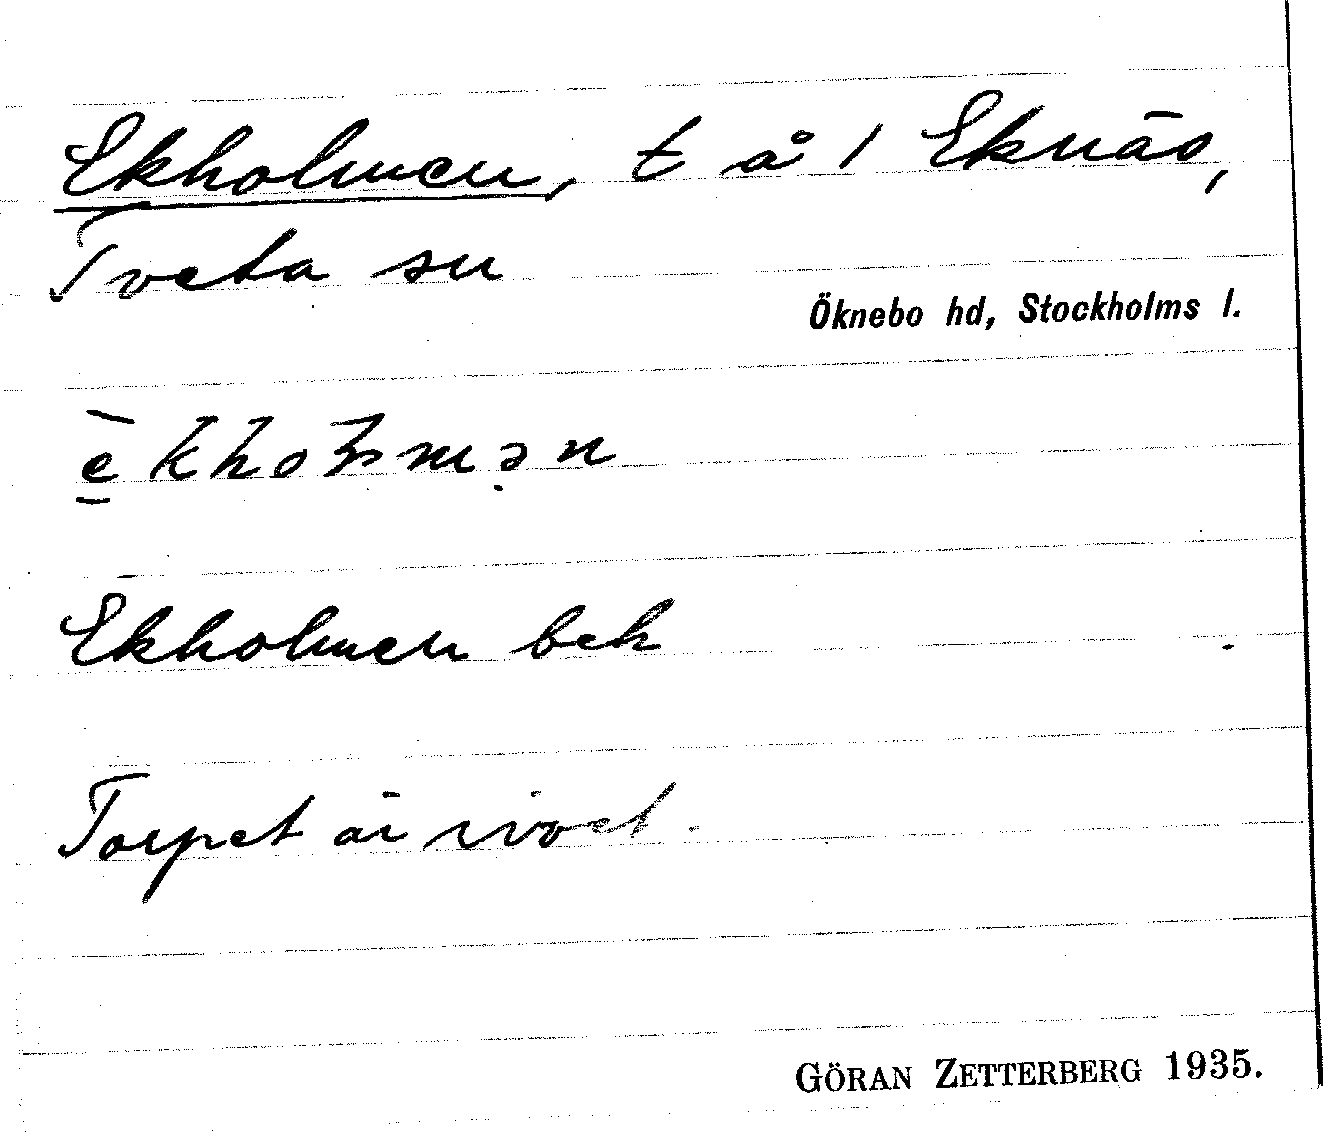 Ekholmen, t å / Eknäs,
Tveta sn
Öknebo hd, Stockholms l.
Ekholmen bek
Torpet är rivet.
GÖRAN ZETTERBERG 1935.